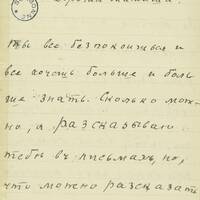 Дорогая мамаша!
ты все безпокоишься и
все хочешь больше и боль
ше знать. Сколько мож-
но, я разсказываю
тебѣ въ письмахъ, но,
что можно разсказать